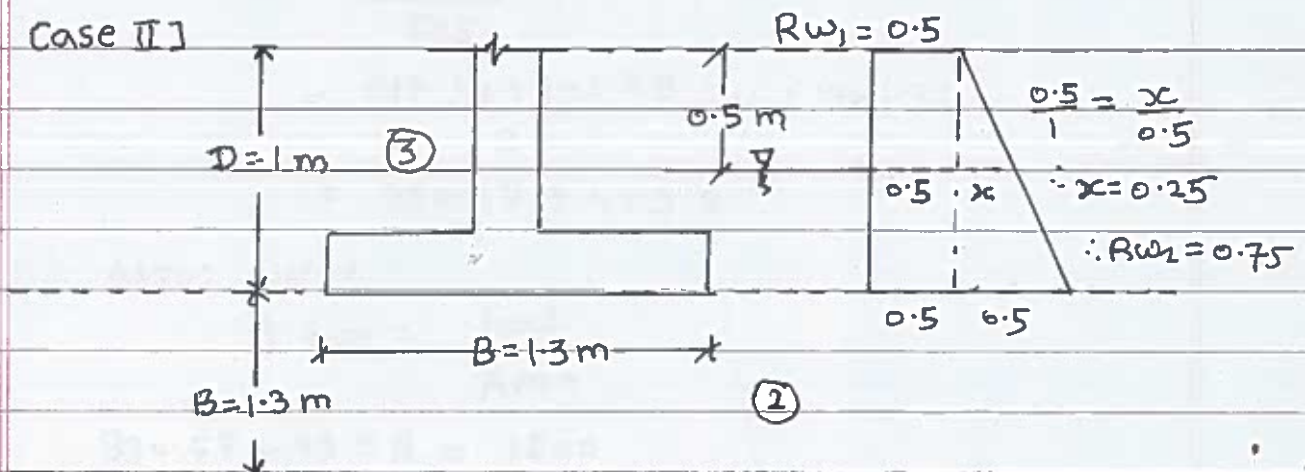 Case II]
Rw₁ = 0.5
0.5 m
0.5/1 = x/0.5
D = 1 m
③
0.5
x
∴ x = 0.25
∴ Rw₂ = 0.75
0.5
0.5
B = 1.3 m
②
B = 1.3 m